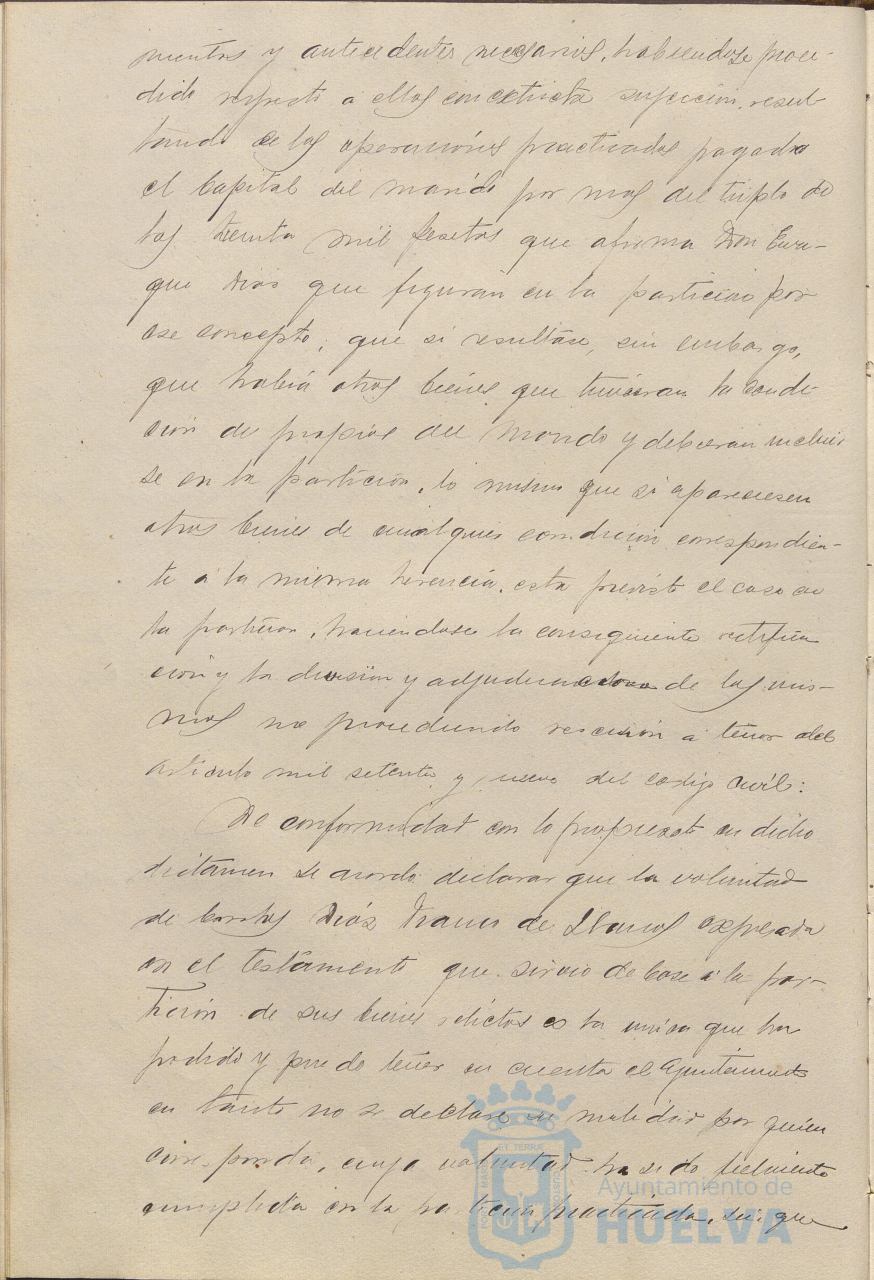 mentos y antecedentes necesarios, habiendose proce-
dido respecto a ellos con estricta sujeción, resul-
tando de las operaciones practicadas pagado
el Capital del marido por mas del triplo de
las treinta mil pesetas que afirma Don Enri-
que Dias que figuran en la particion por
ese concepto; que si resultase, sin embargo,
que había otros bienes que tuvieran la condi-
cion de propios del marido y debieran incluir
se en la partición, lo mismo que si apareciesen
otros bienes de cualquier condicion correspondien-
te á la misma herencia, esta previsto el caso en
la particion, haciendose la consiguiente rectifica
ción y la division y adjudicacion de los mis-
mos no procediendo rescision á tenor del
articulo mil setenta y nueve del codigo civil:
De conformidad con lo propuesto en dicho
dictamen se acordó declarar que la voluntad
de Carlos Díaz Franco de Llanos expresada
en el testamento que sirvio de base á la par-
tición de sus bienes relictos es la unica que ha
podido y puede tener en cuenta el Ayuntamiento
en tanto no se declare su nulidad por quien
corresponda, cuya voluntad ha sido fielmente
cumplida en la particion practicada, sin que
PORTUS MARIS ET TERRAE CUSTODIA
Ayuntamiento de
HUELVA